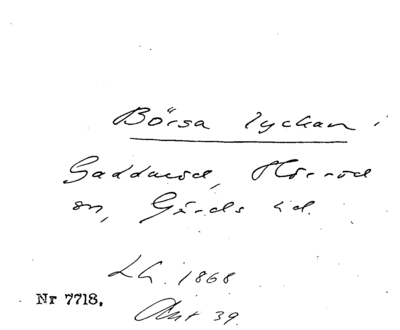 Börsa lyckan i
Gaddarod, Hörröd
sn, Gärds hd.
LG. 1868
Nr 7718.
Akt 39.